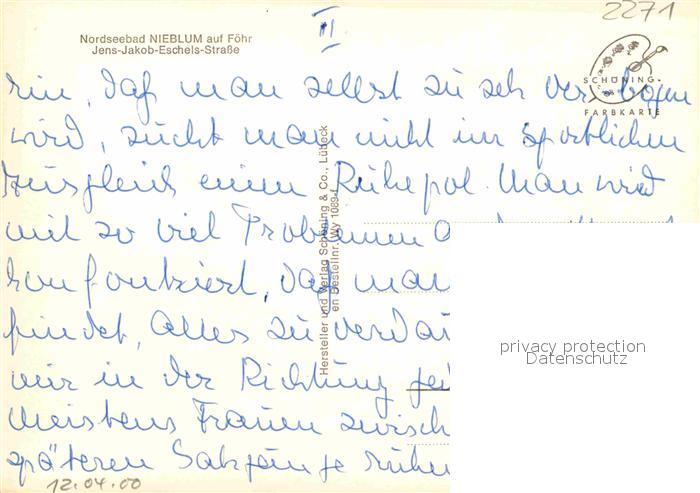 2271
II
Nordseebad NIEBLUM auf Föhr
Jens-Jakob-Eschels-Straße
SCHÖNING-
FARBKARTE
daß man selbst zu seh verbogen
wird, sucht man nicht im sportlichen
Ausgleich einen Ruhepol. Man wird
mit so viel Problemen
konfrontiert, daß man
findet, Alles zu
mir in der Richtung
meistens Frauen
späteren
Hersteller und Verlag Schöning & Co., Lübeck
en Bestellnr. Wy 1089-L
privacy protection
Datenschutz
12.04.00